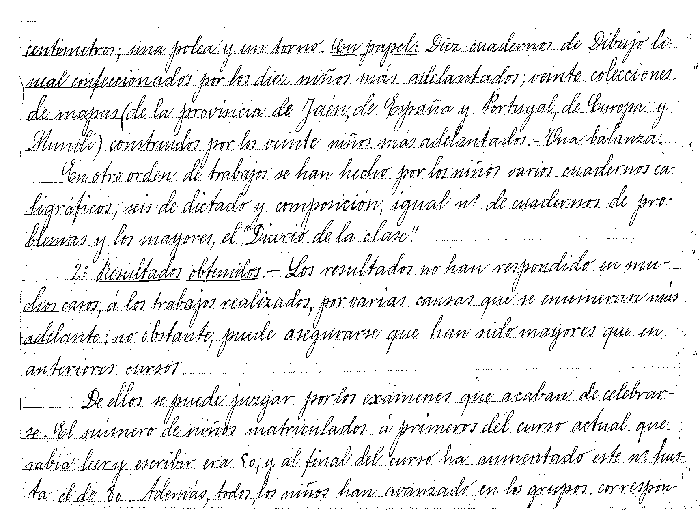 centímetros; una polea y un torno. En papel: Diez cuadernos de Dibujo li-
neal confeccionados por los diez niños más adelantados; veinte colecciones
de mapas (de la provincia de Jaén, de España y Portugal, de Europa y
Mundi) construidos por los veinte niños mas adelantados.- Una balanza.
En otro orden de trabajos se han hecho por los niños varios cuadernos ca-
ligráficos; seis de dictado y composición, igual nº de cuadernos de pro-
blemas y los mayores, el "Diario de la clase".
2º Resultados obtenidos.- Los resultados no han respondido en mu-
chos casos, á los trabajos realizados, por varias causas que se enumeran más
adelante; no obstante, puede asegurarse que han sido mayores que en
anteriores cursos.
De ellos se puede juzgar por los exámenes que acaban de celebrar-
se. El número de niños matriculados á primeros del curso actual que
sabía leer y escribir era 50, y al final del curso ha aumentado este nº has-
ta el de 80. Además, todos los niños han avanzado en los grupos correspon-